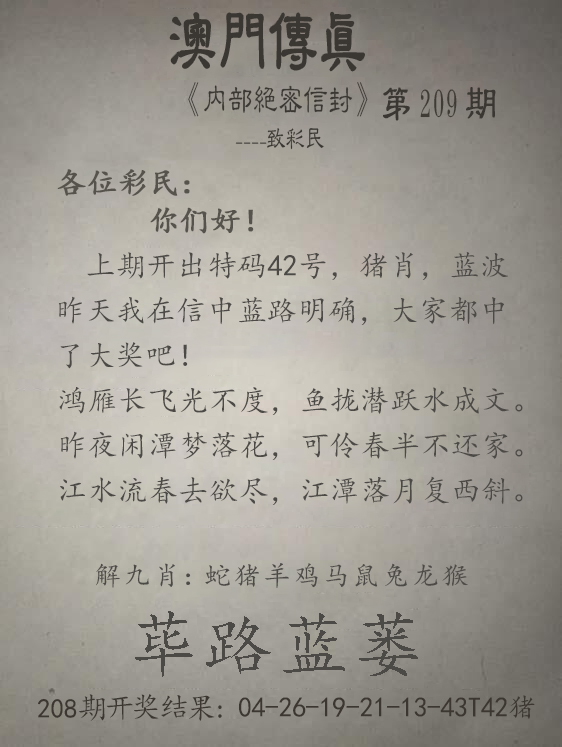 澳門傳眞
《内部絕密信封》第209期
----致彩民
各位彩民：
你们好！
上期开出特码42号，猪肖，蓝波
昨天我在信中蓝路明确，大家都中
了大奖吧！
鸿雁长飞光不度，鱼拢潜跃水成文。
昨夜闲潭梦落花，可伶春半不还家。
江水流春去欲尽，江潭落月复西斜。
解九肖：蛇猪羊鸡马鼠兔龙猴
荜路蓝蒌
208期开奖结果：04-26-19-21-13-43T42猪